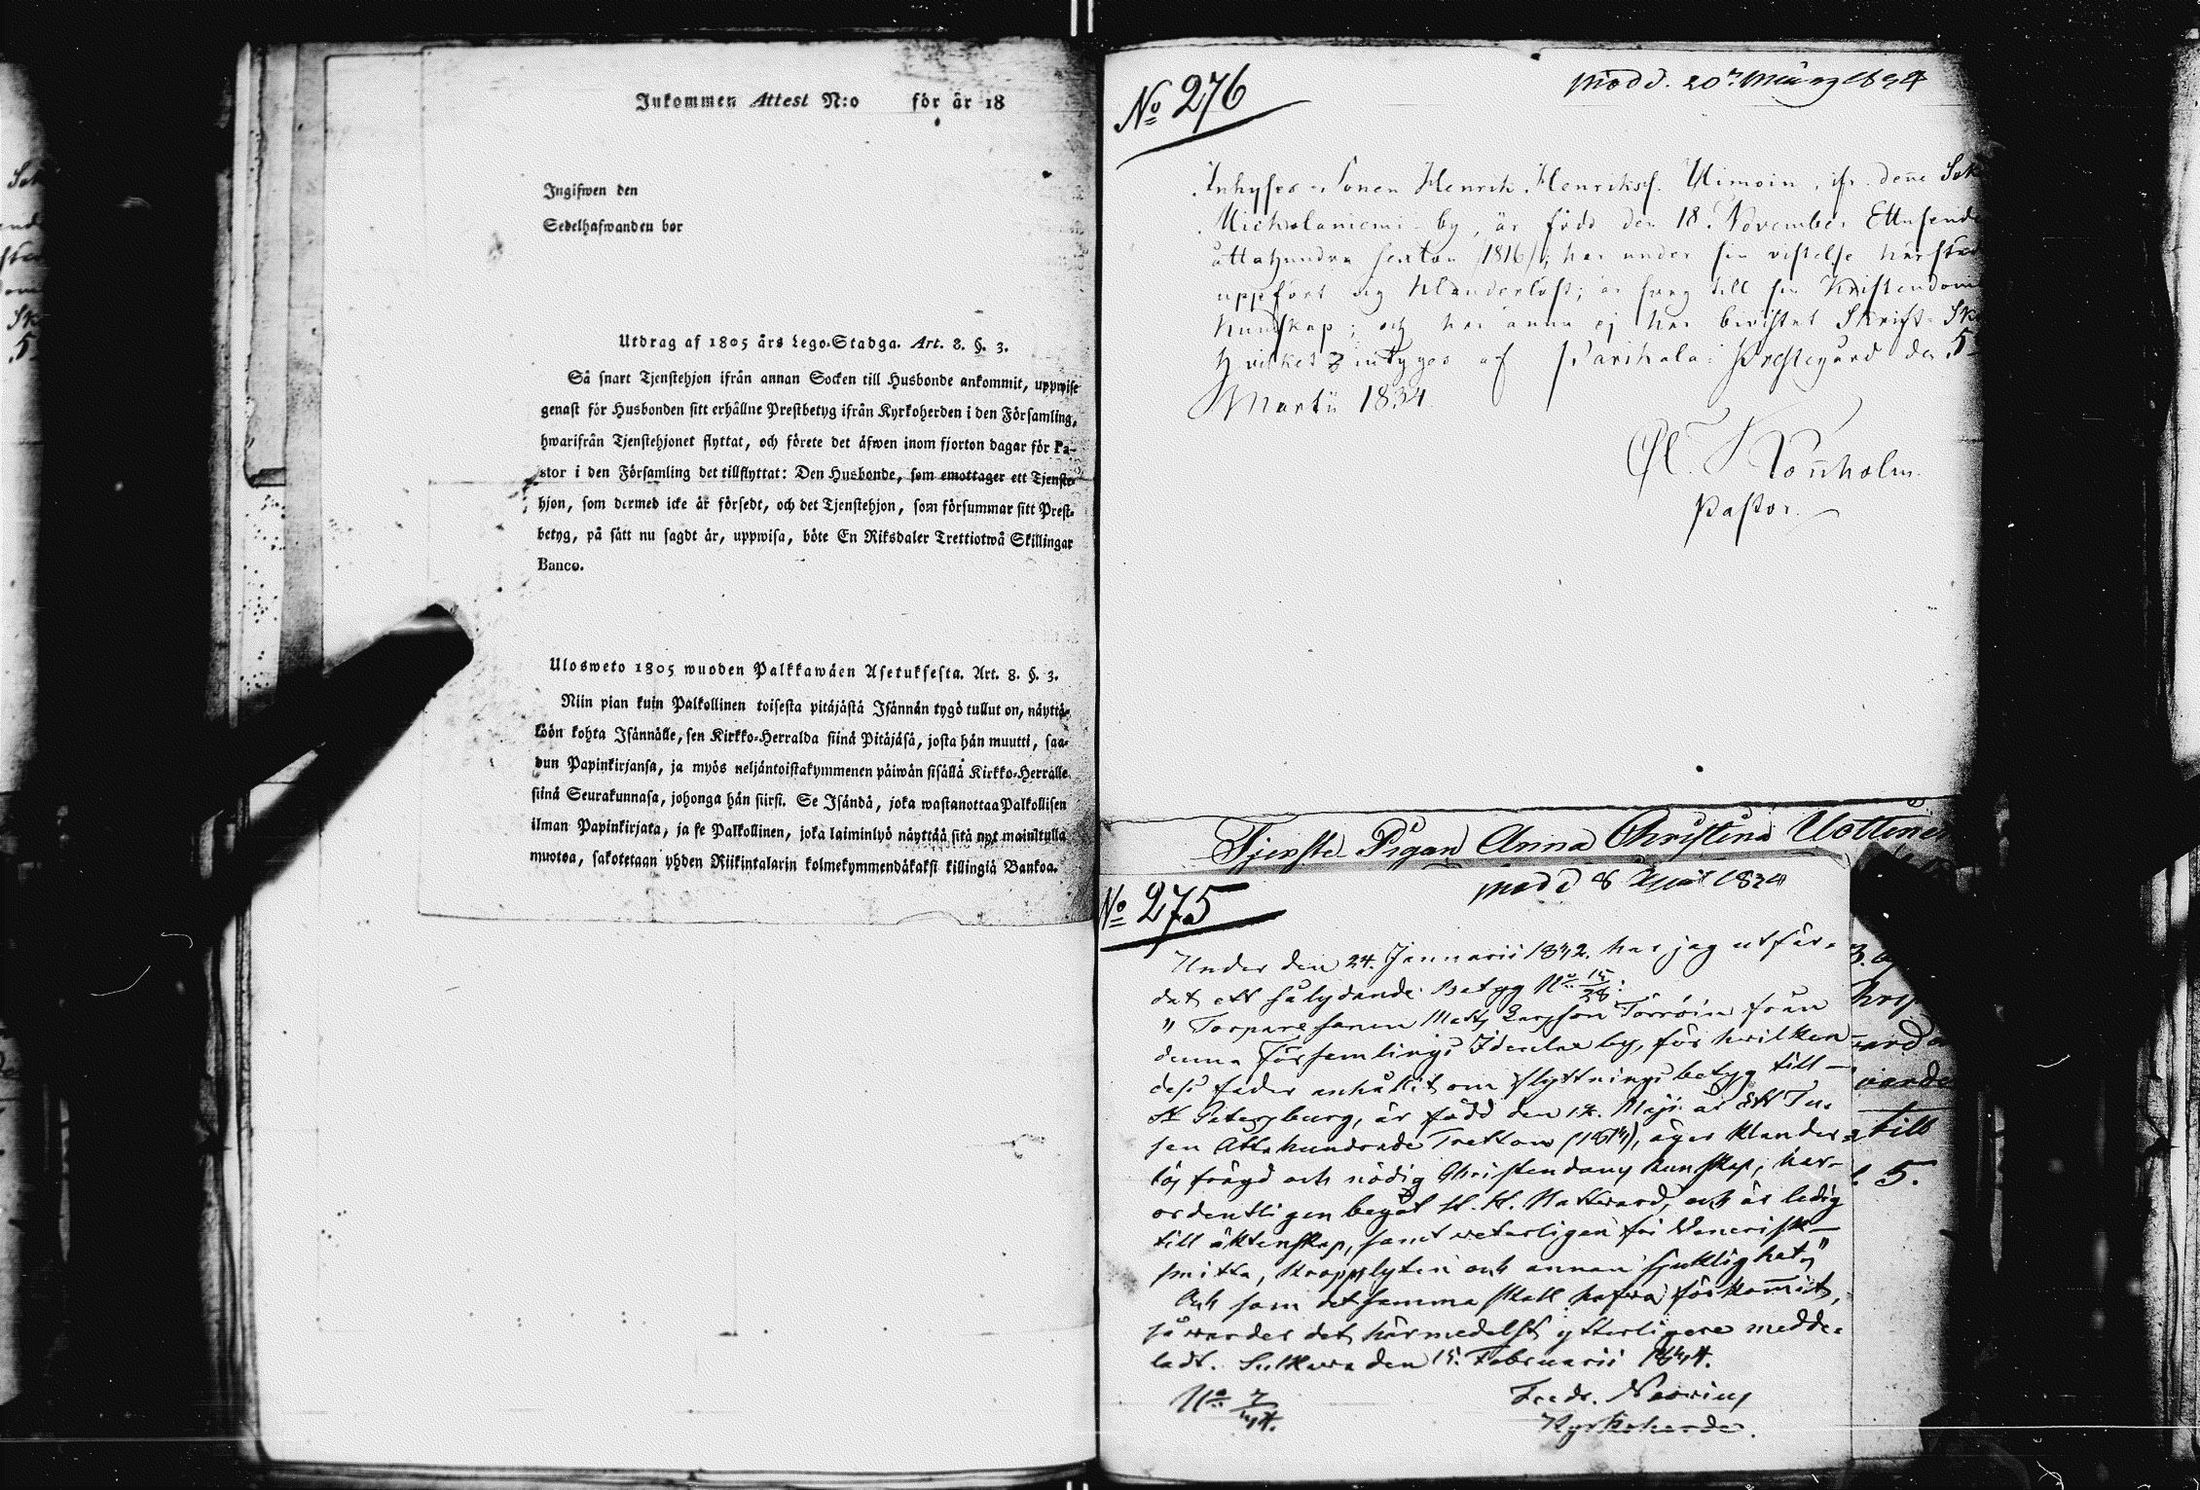 Inkommen Attest N:o för år 18
Ingifwen den
Sedelhafwanden bor
Utdrag af 1805 års Lego-Stadga. Art. 8. §. 3.
Så snart Tjenstehjon ifrån annan Socken till Husbonde ankommit, uppwise
genast för Husbonden sitt erhållne Prestbetyg ifrån Kyrkoherden i den Församling,
hwarifrån Tjenstehjonet flyttat, och förete det äfwen inom fjorton dagar för Pa-
stor i den Församling det tillflyttat: Den Husbonde, som emottager ett Tjenste-
hjon, som dermed icke är försedt, och det Tjenstehjon, som försummar sitt Prest-
betyg, på sätt nu sagdt är, uppwisa, böte En Riksdaler Trettiotwå Skillingar
Banco.
Ulosweto 1805 wuoden Palkkawäen Asetuksesta. Art. 8. §. 3.
Niin pian kuin Palkollinen toisesta pitäjästä Isännän tygö tullut on, näyttä-
köön kohta Isännälle, sen Kirkko-Herralda siinä Pitäjäsä, josta hän muutti, saa-
dun Papinkirjansa, ja myös neljäntoistakymmenen päiwän sisällä Kirkko-Herralle
siinä Seurakunnasa, johonga hän siirsi. Se Isändä, joka wastanottaa Palkollisen
ilman Papinkirjata, ja se Palkollinen, joka laiminlyö näyttää sitä nyt mainitulla
muotoa, sakotetaan yhden Riikintalarin kolmekymmendäkaksi killingiä Bankoa.
No 276
Inhyses Sonen Henrik Henrikss. Uimoin, ifr. denne
by, är född den 18. November Ettusende
åttahundra sexton (1816); har under sin vistelse härstäd
uppfört sig klanderlöst; är svag till sin Kristendoms
kunskap; och har ännu ej bevistat Skrift-Sk
hvilket intygas af Parikala Prestegård den 5
Martii 1834
Pastor.
Tjenste Pigan Anna Christina Uottinen
No 275
Under den 24. Januarii 1842. har jag utfär-
dat ett sålydande Betyg No 15/38:
" Torparesonen Matts Larsson Torröin från
denna Församlings Idenlax by, för hvilken
dess fader anhållit om flyttningsbetyg till
St Petersburg, är född den 14. Maji år Ett Tu-
sen Åttahundrade Tretton äger klander-
lös frägd och nödig Christendoms kunskap, har
ordentligen begått H. H. Nattvard, och är ledig
till äktenskap, samt veterligen fri Venerisk
smitta, kropps lyten och annan sjuklighet,"
Och som detsamma skall hafva förkommit,
så varder det härmedelst ytterligare medde-
ladt. Sulkava den 15. Februarii
Fredr. Neovius
Kyrkoherde.
till
5.